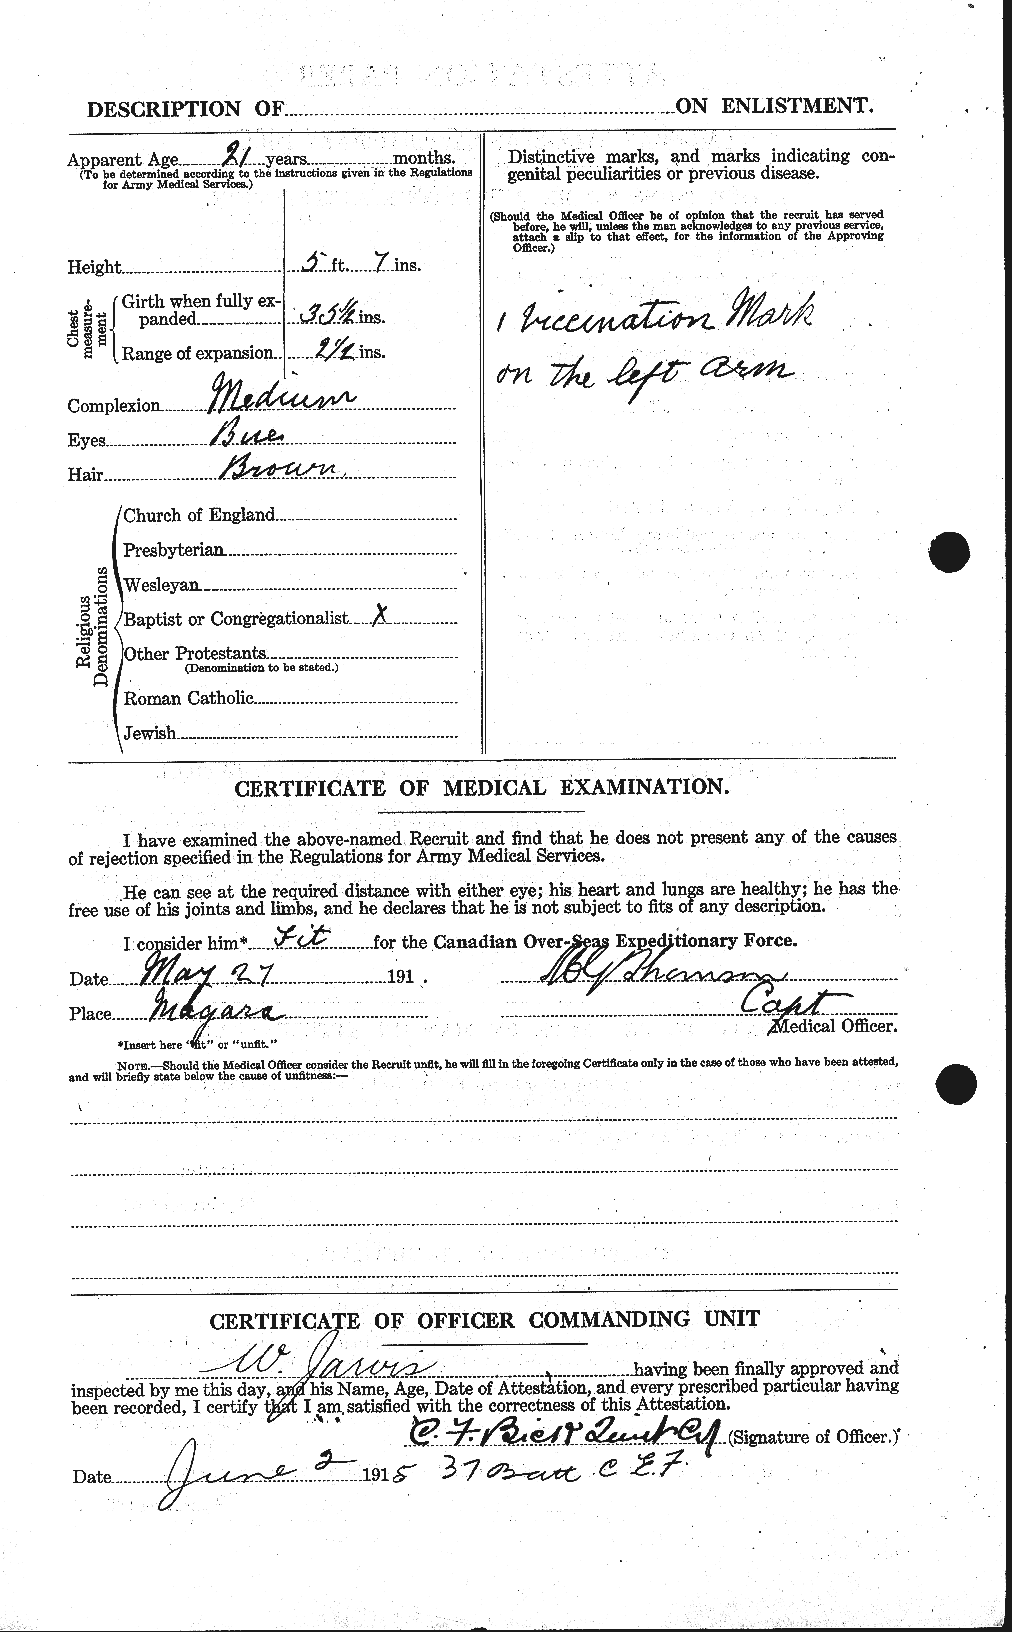 DESCRIPTION OF ON ENLISTMENT.
Apparent Age 21 years months.
(To be determined according to the instructions given in the Regulations
for Army Medical Services.)
Height 5 ft. 7 ins.
Chest measure-ment
Girth when fully ex-
panded 35½ ins.
Range of expansion 2½ ins.
Complexion Medium
Eyes Bue
Hair Brown
Religious Denominations
Church of England
Presbyterian
Wesleyan
Baptist or Congregationalist X
Other Protestants
(Denomination to be stated.)
Roman Catholic
Jewish
Distinctive marks, and marks indicating con-
genital peculiarities or previous disease.
(Should the Medical Officer be of opinion that the recruit has served
before, he will, unless the man acknowledges to any previous service,
attach a slip to that effect, for the information of the Approving
Officer.)
1 Viccination Mark
on the left arm
CERTIFICATE OF MEDICAL EXAMINATION.
I have examined the above-named Recruit and find that he does not present any of the causes
of rejection specified in the Regulations for Army Medical Services.
He can see at the required distance with either eye; his heart and lungs are healthy; he has the
free use of his joints and limbs, and he declares that he is not subject to fits of any description.
I consider him* Fit for the Canadian Over-Seas Expeditionary Force.
Date May 27 191 .
Thomson
Place Niagara
Capt
Medical Officer.
*Insert here "fit" or "unfit."
NOTE.—Should the Medical Officer consider the Recruit unfit, he will fill in the foregoing Certificate only in the case of those who have been attested,
and will briefly state below the cause of unfitness:—
CERTIFICATE OF OFFICER COMMANDING UNIT
W. Jarvis having been finally approved and
inspected by me this day, and his Name, Age, Date of Attestation, and every prescribed particular having
been recorded, I certify that I am satisfied with the correctness of this Attestation.
C. F. (Signature of Officer.)
Date June 2 1915 37 Batt C E.F.